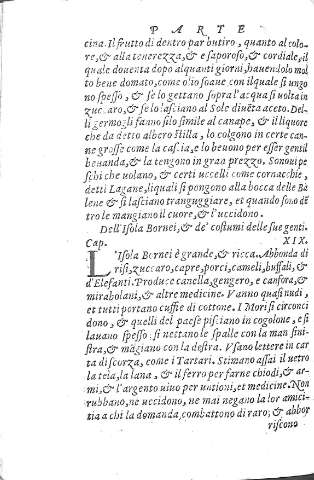 PARTE
cina. Il frutto di dentro par butiro, quanto al colo-
re, & alla tenerezza, & e saporoso, & cordiale, il
quale doventa dopo alquanti giorni, havendolo mol
to bene domato, come d'io soave con il quale si ungo
no spesso, & se lo gettano sopra l'acqua si volta in
zuccaro, & se lo lasciano al Sole divēta aceto. Del-
li germogli fanno filo simile al canape, & il liquore
che da detto albero stilla, lo colgono in certe can-
ne grosse come la cassia, e lo bevono per esser gentil
bevanda, & la tengono in gran prezzo. Sonovi pe
schi che volano, & certi uccelli come cornacchie,
detti Lagane, liquali si pongono alla bocca delle Ba
lene & si lasciano tranguggiare, et quando sono dē
tro le mangiano il cuore, & l'uccidono.
Dell'Isola Bornei, & de' costumi delle sue genti.
Cap. XIX.
L'Isola Bornei è grande, & ricca. Abbonda di
risi, zuccaro, capre, porci, cameli, buffali, &
d'Elefanti. Produce canella, gengero, e canfora, &
mirabolani, & altre medicine. Vanno quasi nudi,
et tutti portano cuffie di cottone. I Mori si circonci
dono, & quelli del paese pisciano in cogolone, e si
lavano spesso: si nettano le spalle con la man sini-
stra, & māgiano con la destra. Vsano lettere in car
ta di scorza, come i Tartari. Stimano assai il vetro
la tela, la lana, & il ferro per farne chiodi, & ar-
mi, & l'argento vivo per untioni, et medicine. Non
rubbano, ne uccidono, ne mai negano la lor amici-
tia a chi la domanda, combattono di raro, & abbor
riscono